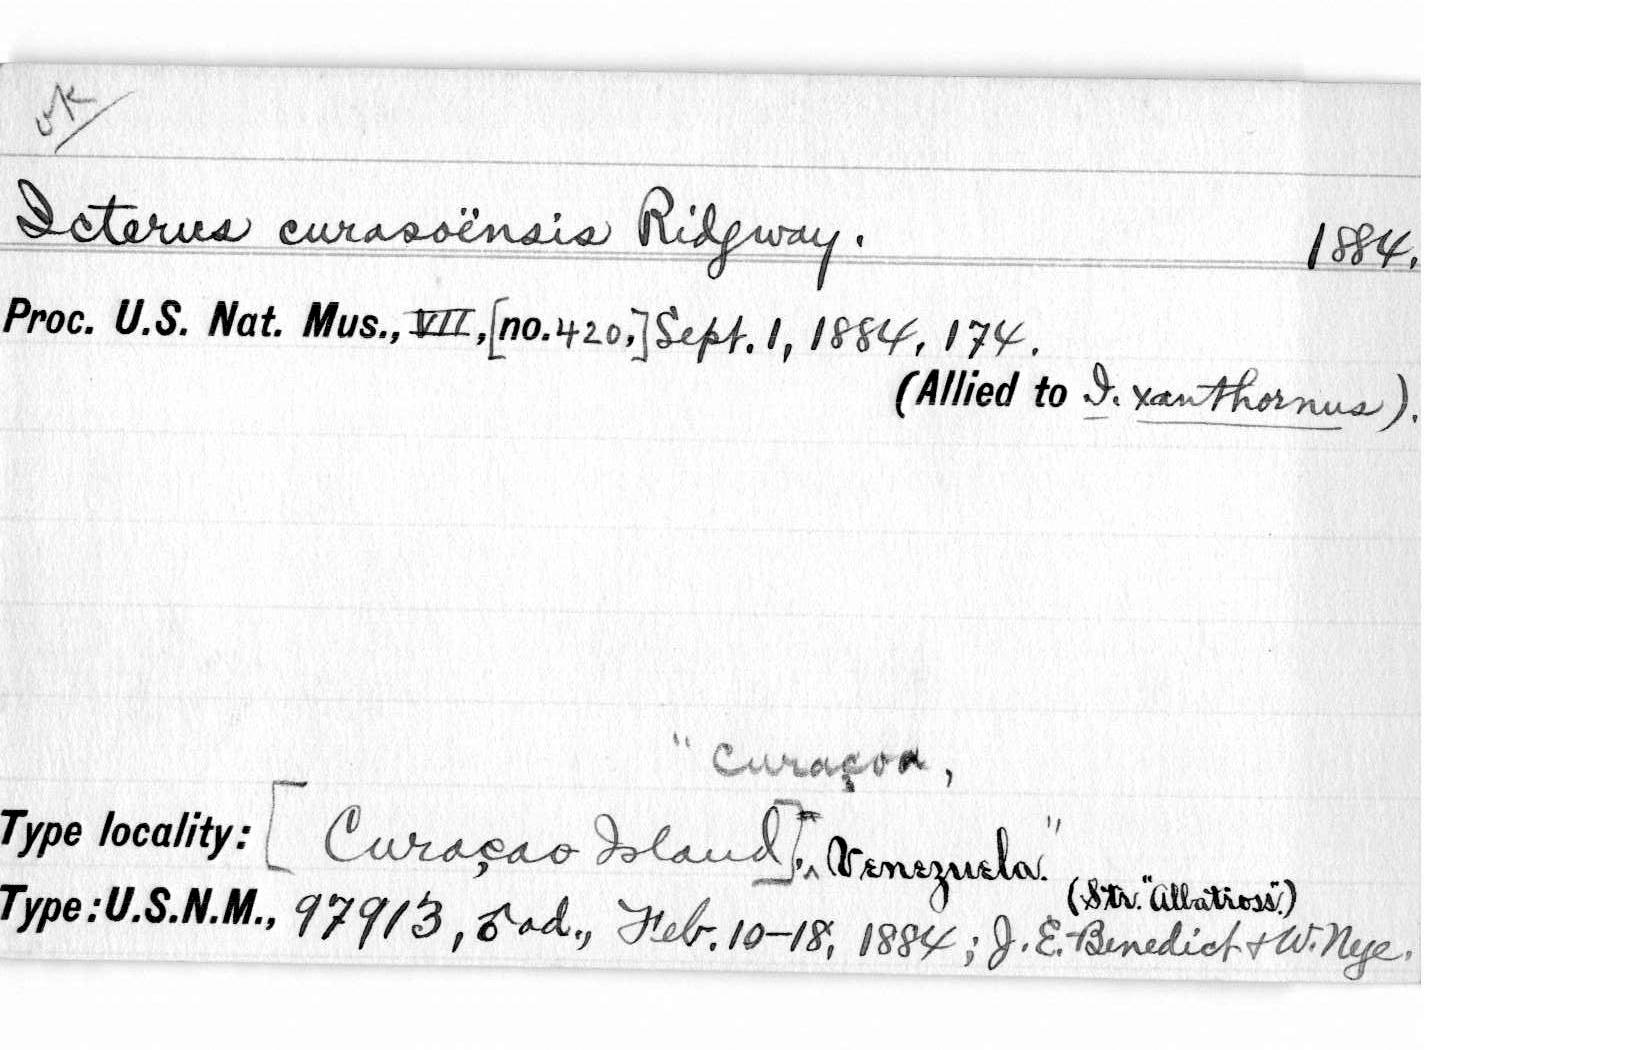 ok
Icterus curasoënsis Ridgway. 1884.
Proc. U.S. Nat. Mus., VII, [no. 420,] Sept. 1, 1884, 174.
(Allied to I. xanthornus).
" Curaçoa,
Type locality: [Curaçao Island], ^ Venezuela."
(Str. "Albatross".)
Type: U.S.N.M., 97913, ad., Feb. 10-18, 1884; J. E. Benedict & W. Nye.